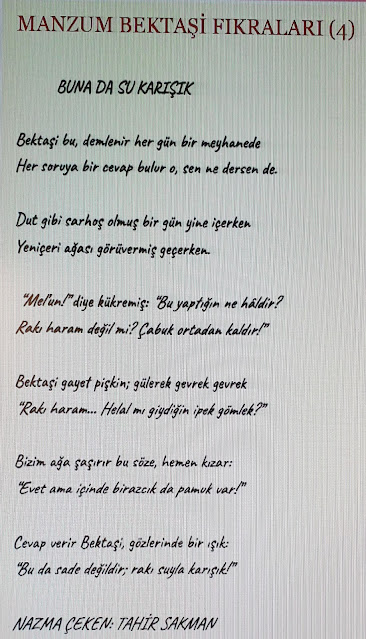 MANZUM BEKTAŞİ FIKRALARI (4)
BUNA DA SU KARIŞIK
Bektaşi bu, demlenir her gün bir meyhanede
Her soruya bir cevap bulur o, sen ne dersen de.
Dut gibi sarhoş olmuş bir gün yine içerken
Yeniçeri ağası görüvermiş geçerken.
"Mel'un!" diye kükremiş: "Bu yaptığın ne hâldir?
Rakı haram değil mi? Çabuk ortadan kaldır!"
Bektaşi gayet pişkin; gülerek gevrek gevrek
"Rakı haram... Helal mı giydiğin ipek gömlek?"
Bizim ağa şaşırır bu söze, hemen kızar:
"Evet ama içinde birazcık da pamuk var!"
Cevap verir Bektaşi, gözlerinde bir ışık:
"Bu da sade değildir; rakı suyla karışık!"
NAZMA ÇEKEN: TAHİR SAKMAN